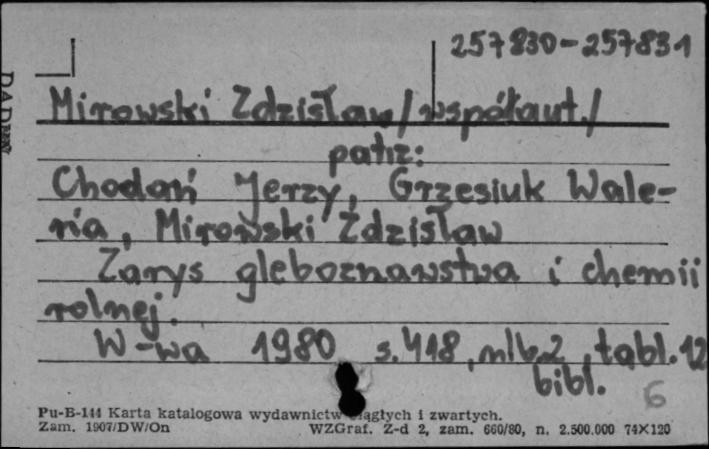 257830-257831
Mirowski Zdzisław/współaut./
patrz:
Chodań Jerzy, Grzesiuk Wale-
ria, Mirowski Zdzisław
Zarys gleboznawstwa i chemii
rolnej.
W-wa 1980 s.418, nlb.2, tabl.12
bibl. 6
Pu-B-144 Karta katalogowa wydawnictw ciągłych i zwartych.
Zam. 1907/DW/On WZGraf. Z-d 2, zam. 660/80, n. 2.500.000 74X120